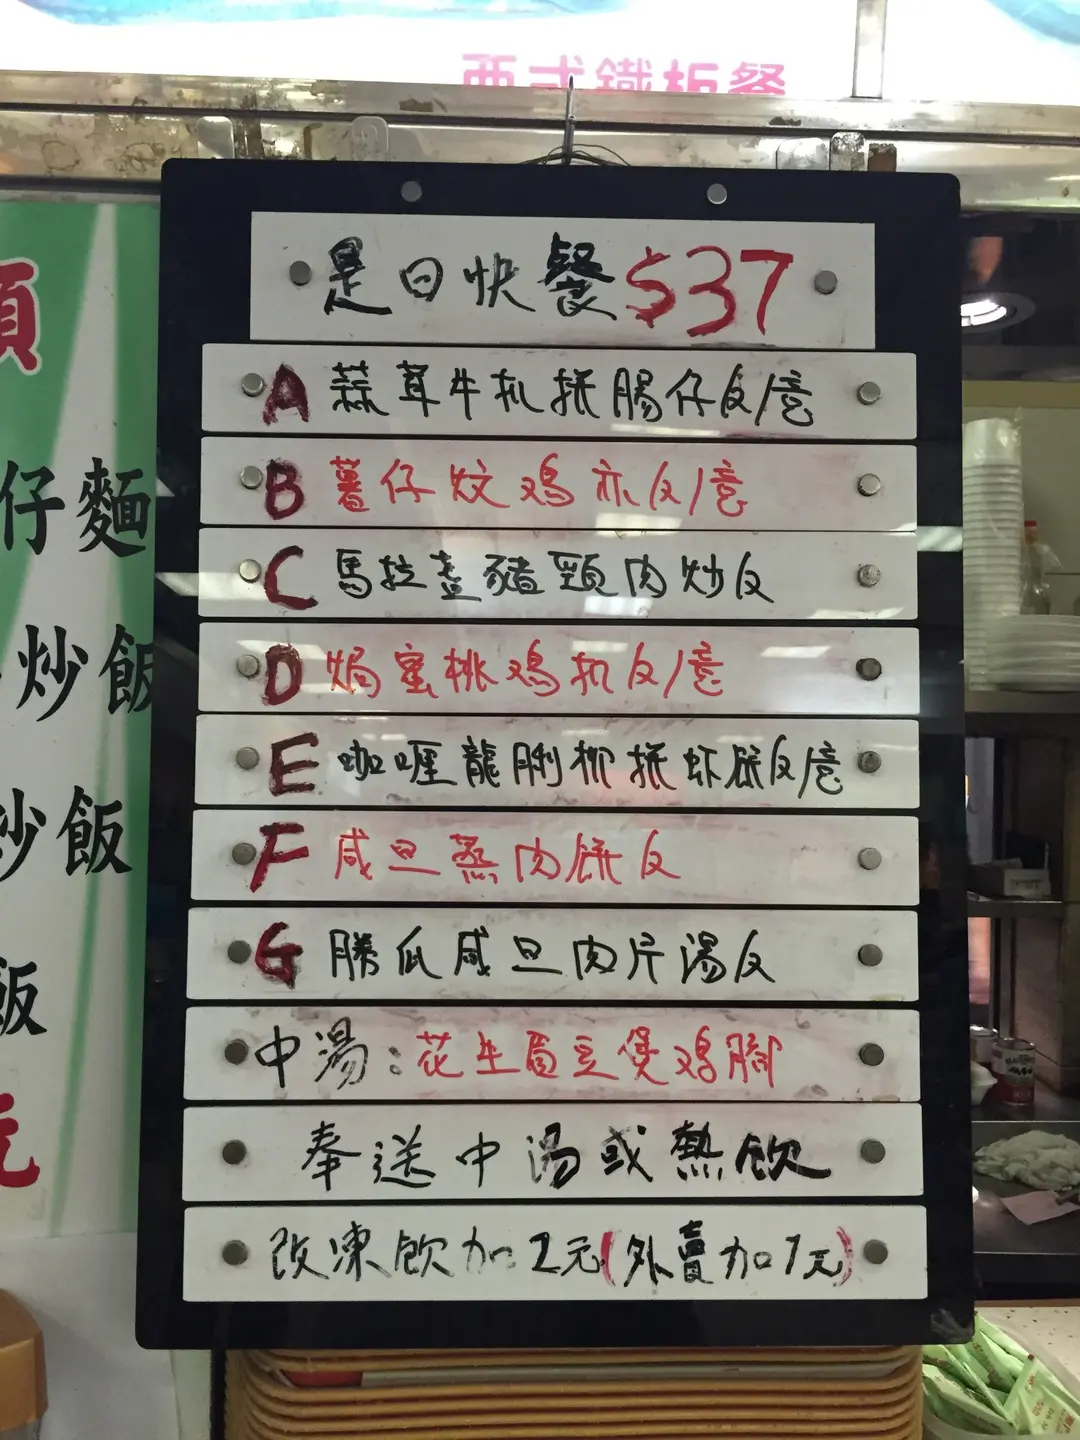 西式鐵板餐
是日快餐$37
A 蒜茸牛扒拼腸仔反/意
B 薯仔炆鸡亦反/意
C 馬拉盞豬頸肉炒反
D 焗蜜桃鸡扒反/意
E 咖喱龍脷柳拼虾餅反/意
F 咸旦蒸肉餅反
G 勝瓜咸旦肉片湯反
中湯：花生眉豆煲鸡腳
奉送中湯或熱飲
改凍飲加2元(外賣加1元)
仔麵
炒飯
炒飯
飯
元